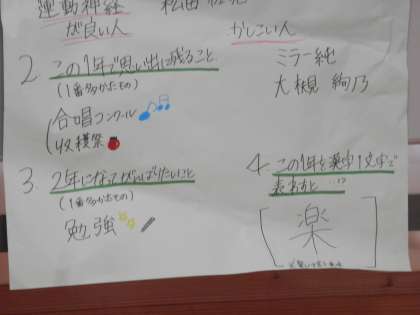 運動神経
が良い人
かしこい人
ミラー純
大槻 絢乃
2 この1年で思い出に残ること
(1番多かたもの)
合唱コンクール
収穫祭
3. 2年になってがんばりたいこと
(1番多かたもの)
勉強
4. この1年を漢字1文字で
表すと…
楽